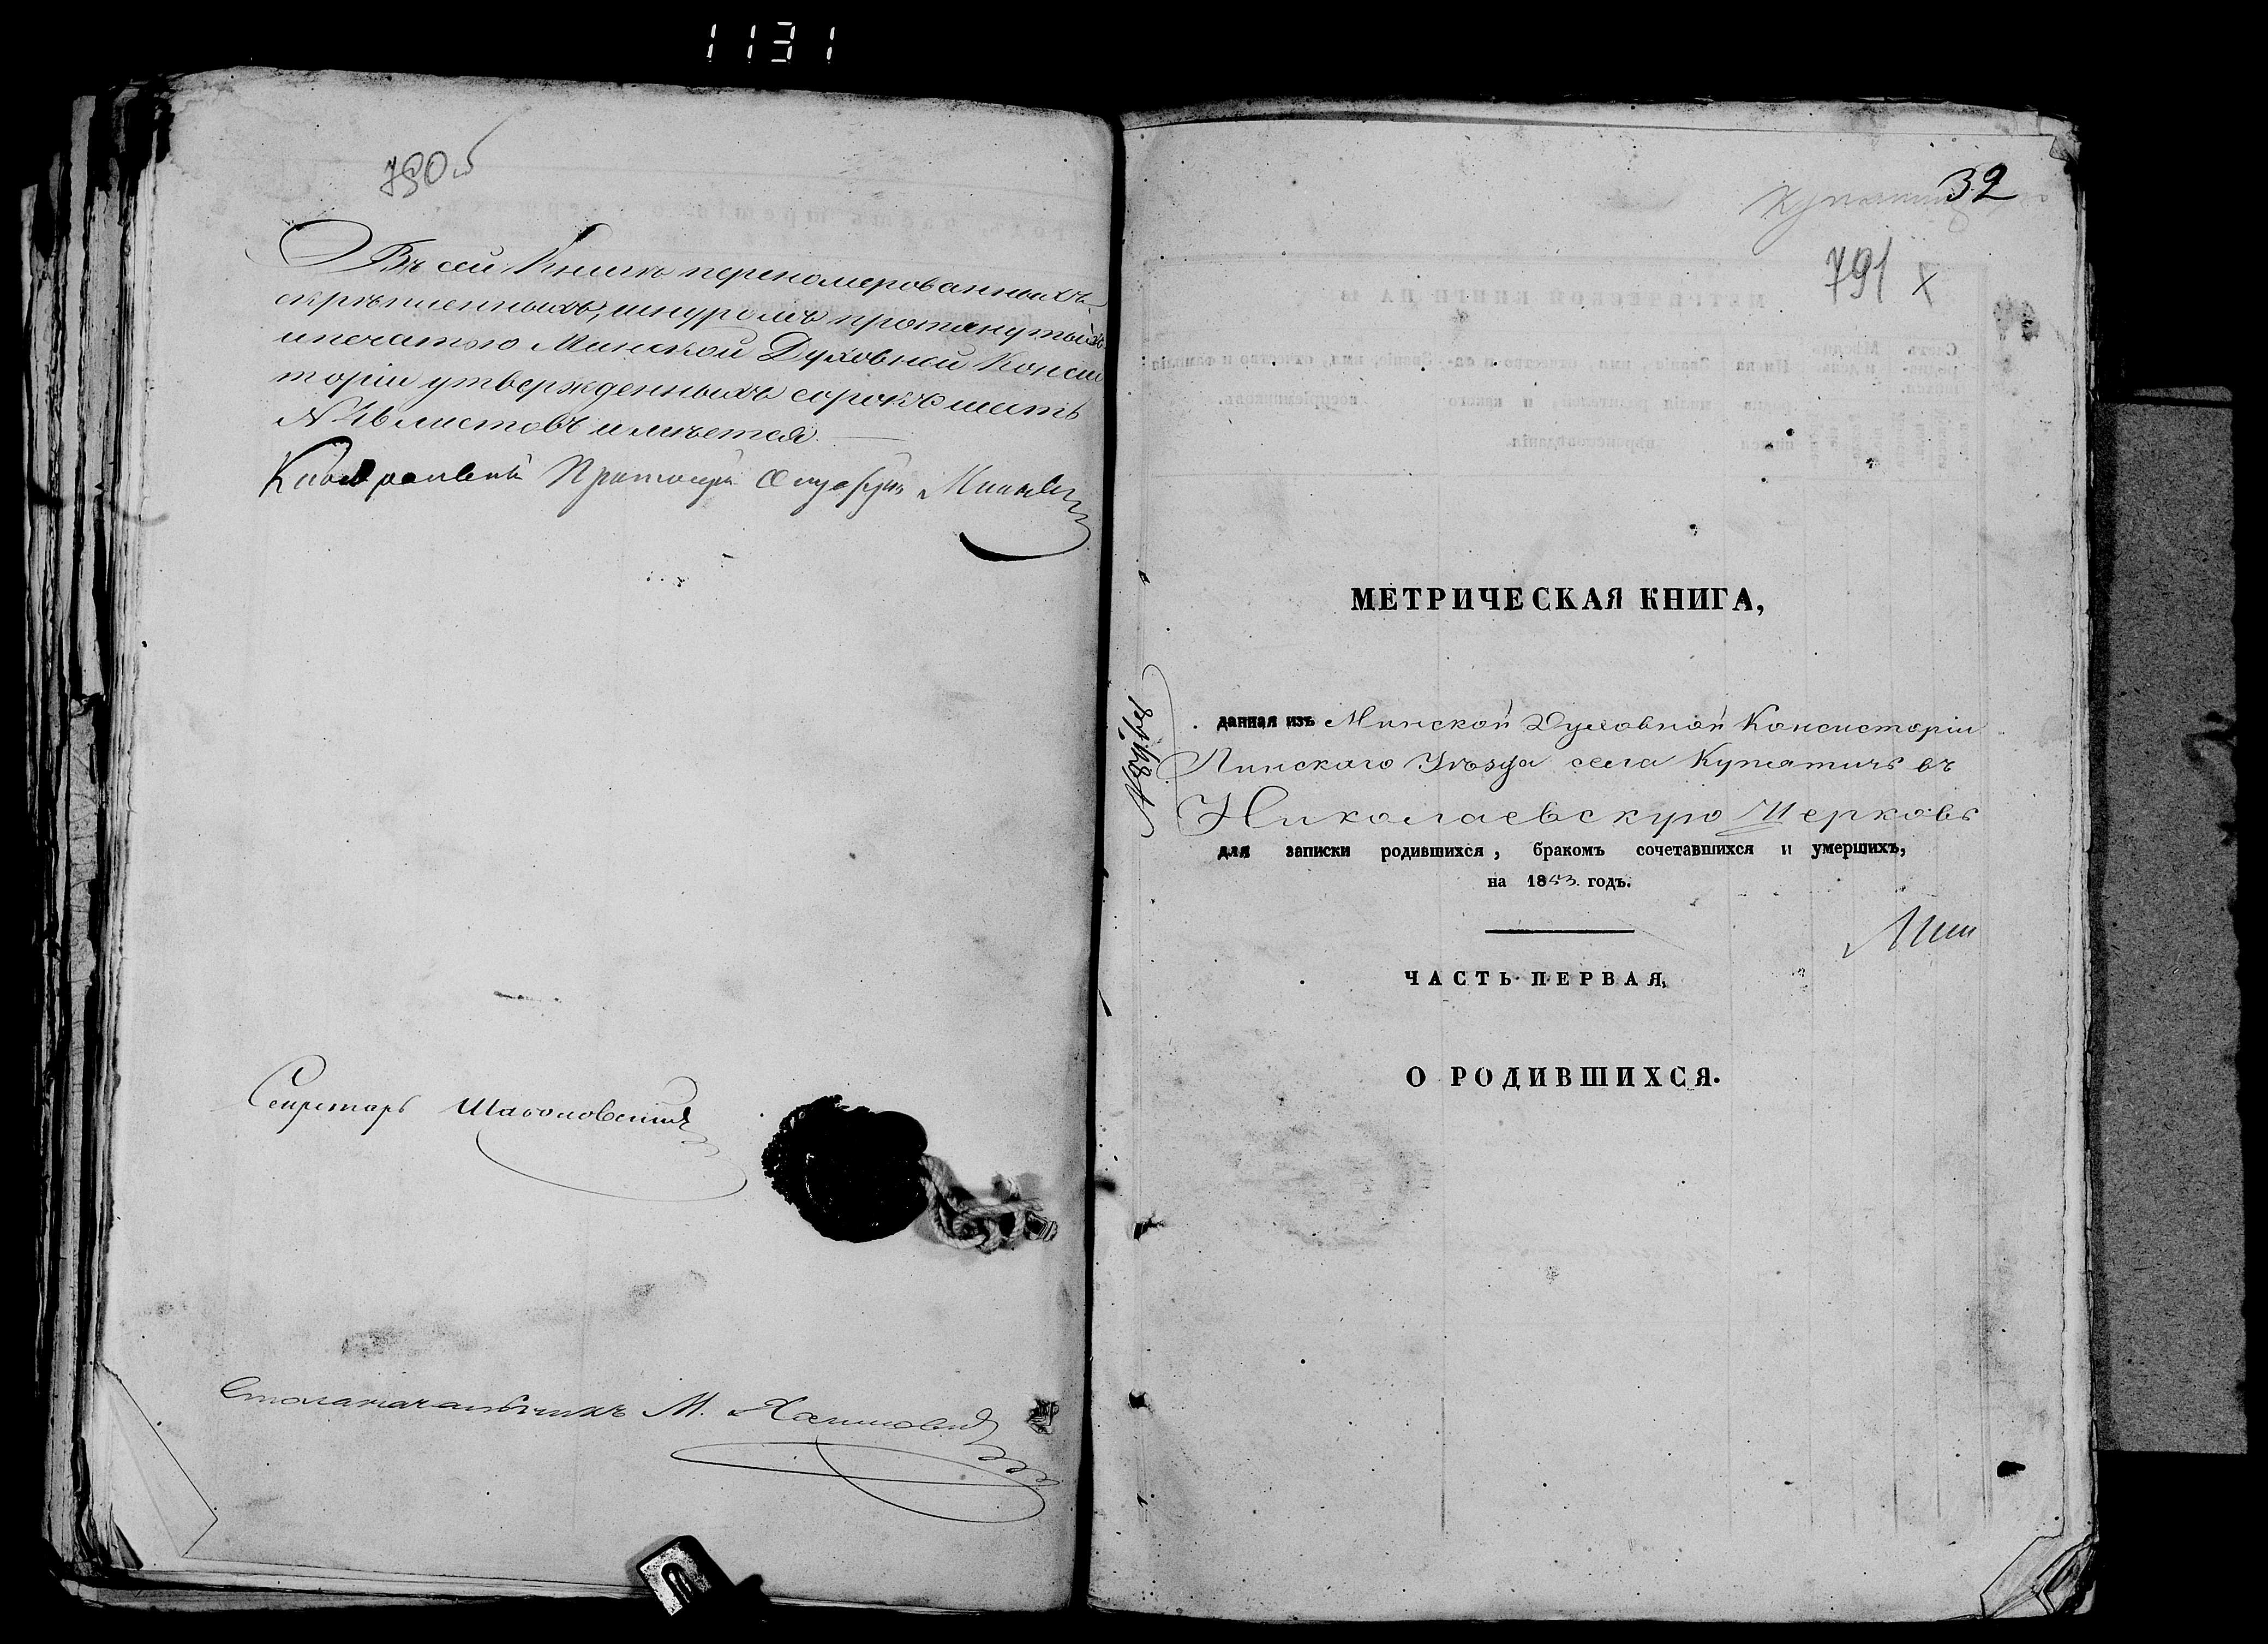 1131
790 об
Въ сей Книгѣ перенумерованныхъ
скрѣпленныхъ, шнуромъ протянутыхъ
и печатью Минской Духовной Консис
торіи утвержденныхъ сорокъ шесть
№ 46 листовъ имѣется.
Кафедральный Протоіерей
Секретарь
Столоначальникъ М.
32
791 х
МЕТРИЧЕСКАЯ КНИГА,
данная изъ Минской Духовной Консисторіи
Пинскаго Уѣзда села Купятичъ въ
Николаевскую Церковь
для записки родившихся, бракомъ сочетавшихся и умершихъ,
на 1853 годъ.
ЧАСТЬ ПЕРВАЯ,
О РОДИВШИХСЯ.